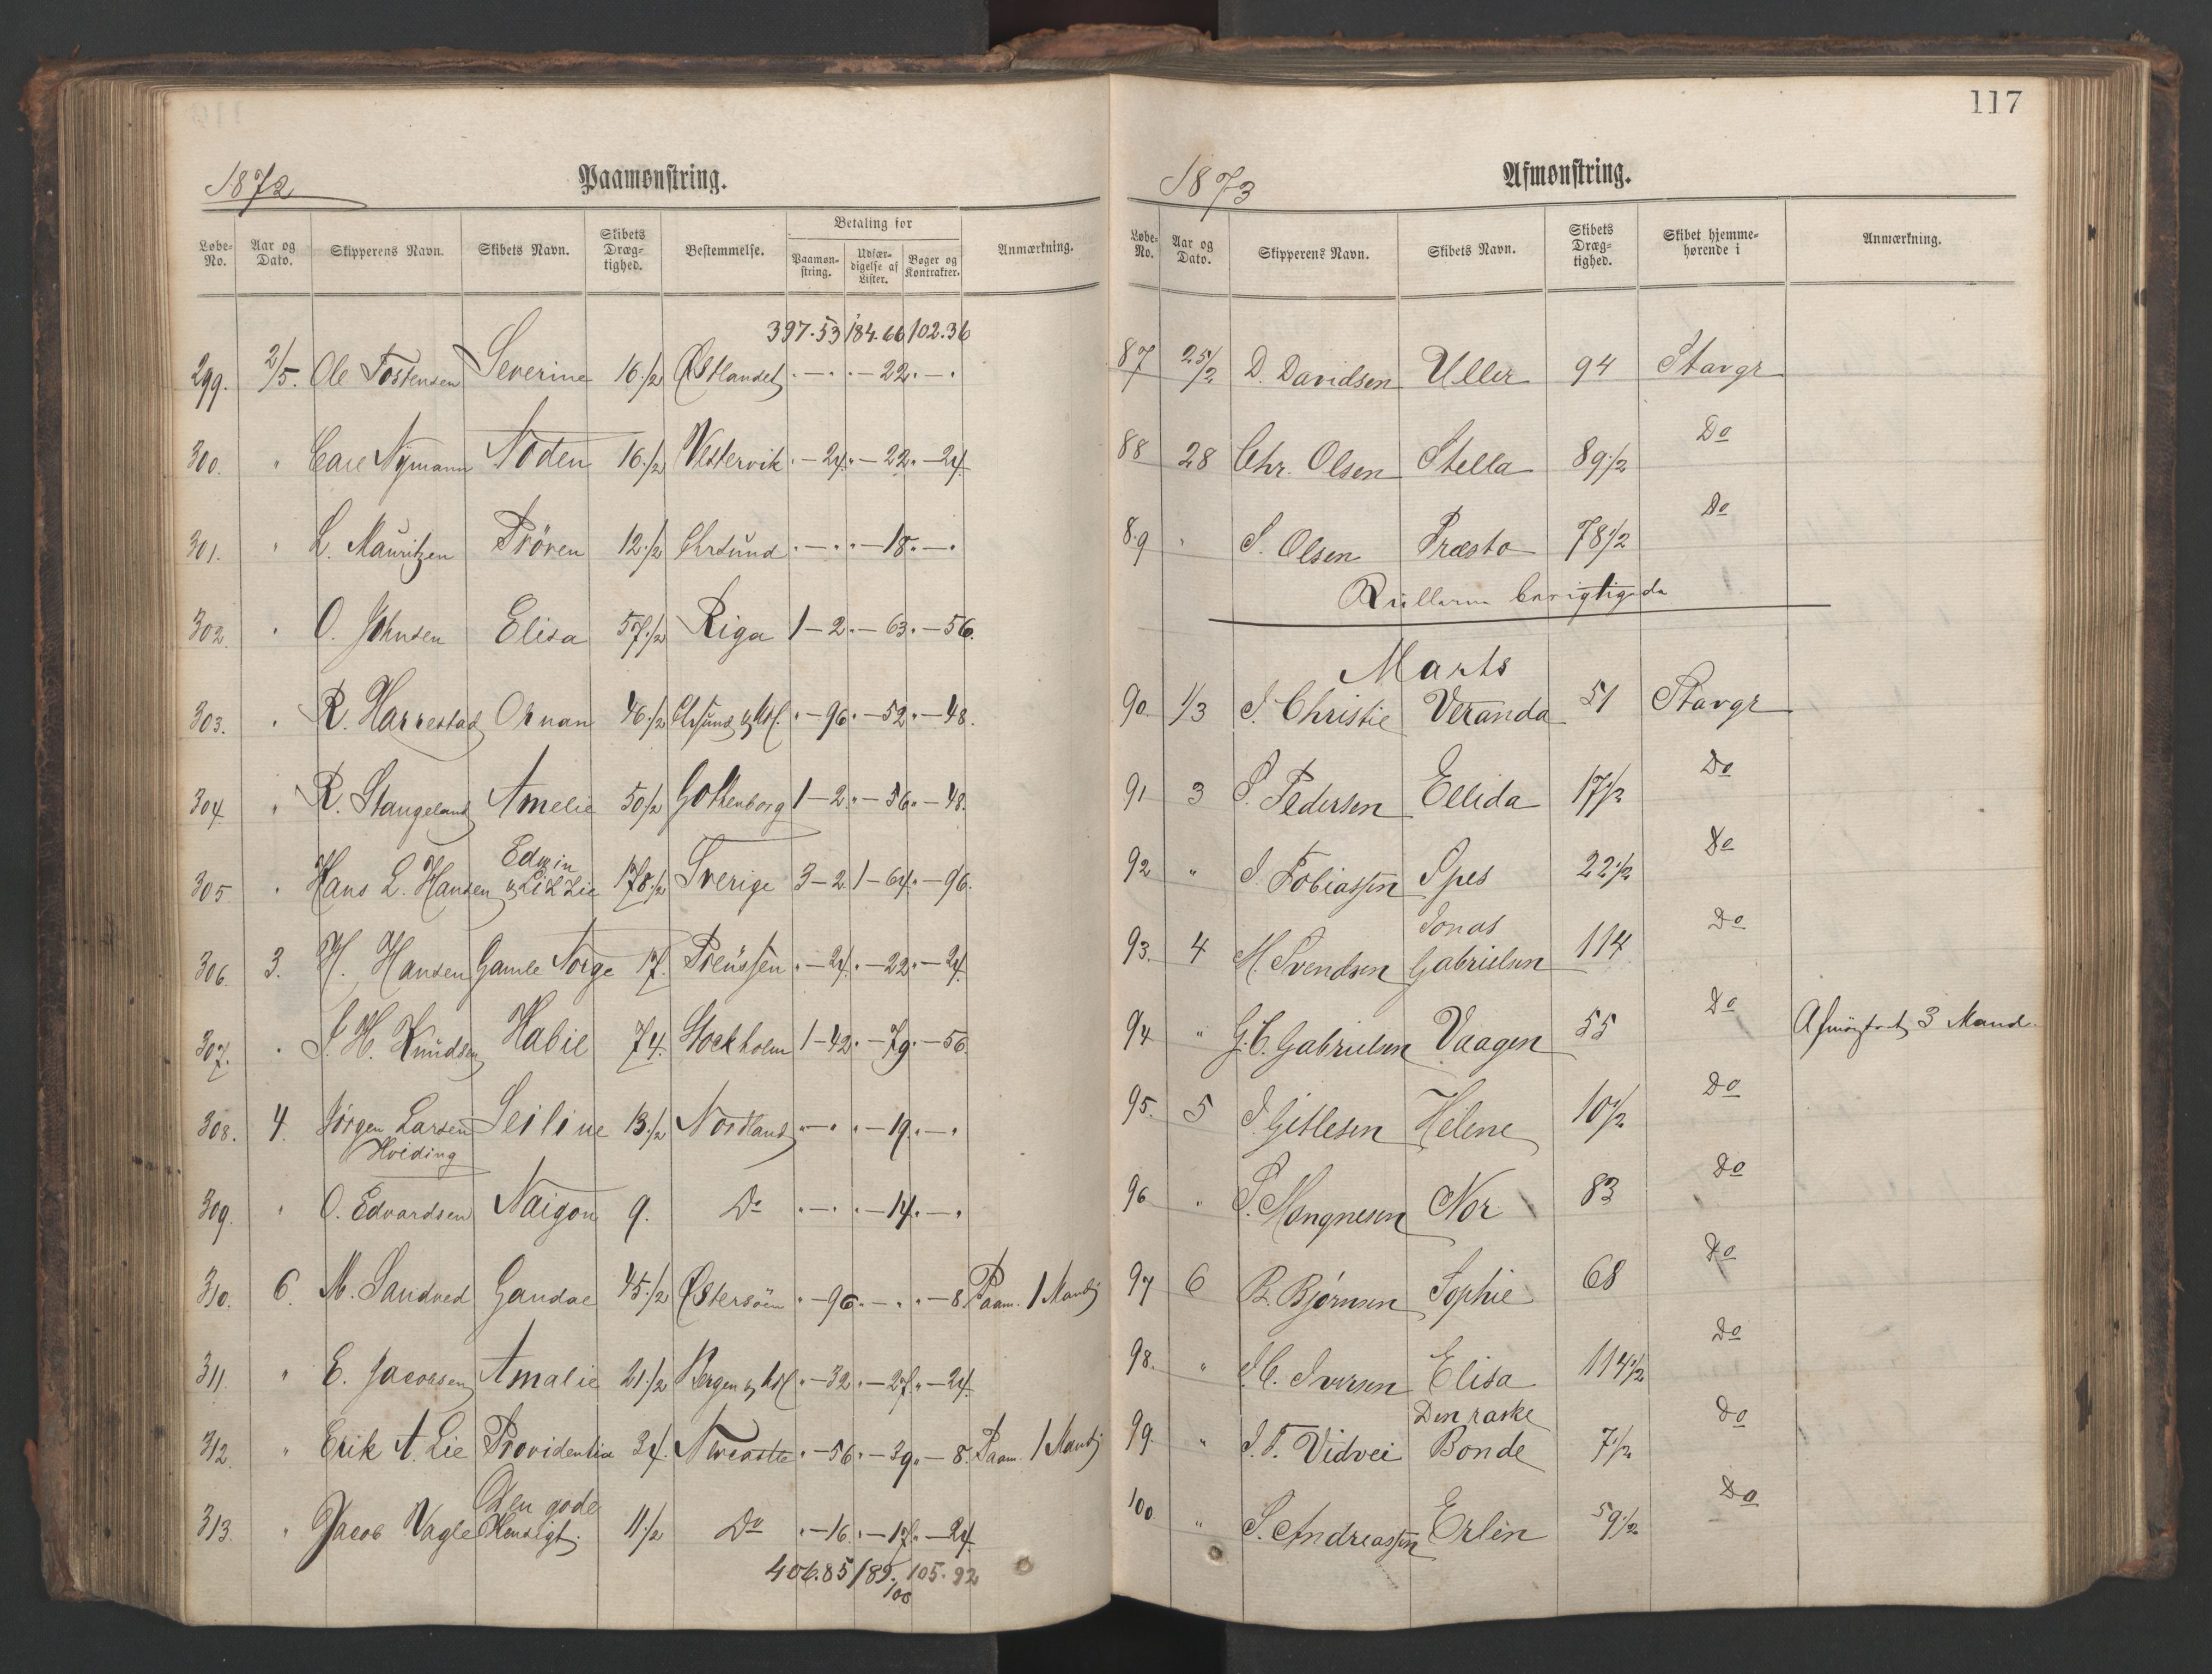 1872
Paamønstring.
Løbe-No. Aar og Dato. Skipperens Navn. Skibets Navn. Skibets Dræg-tighed. Bestemmelse. Betaling for Paamøn-string. Udfær-digelse af Lister. Bøger og Kontrakter. Anmærkning.
397.53 184.66 102.36
299. 2/5. Ole Tostensen Severine 16 1/2 Østlandet " — " " — 22 " — "
300. " Carl Nymann Noden 16 1/2 Vestervik " — 24 " — 22 " — 24
301. " L. Mauritzen Prøven 12 1/2 Chrsund " — " " — 18 " — "
302. " O. Johnsen Elisa 57 1/2 Riga 1 — 2 " — 63 " — 56
303. " R. Harrestad Ornan 46 1/2 Chrsund & " — 96 " — 52 " — 48
304. " R. Stangeland Amelie 50 1/2 Gottenborg 1 — 2 " — 56 " — 48
305 " Hans L. Hansen Edvin & Lizzie 178 1/2 Sverige 3 — 2 1 — 64 " — 96
306. 3. H. Hansen Gamle Norge 17. Preussen " — 24 " — 22 " — 24
307. " S. H. Knudsen Habil 74. Stockholm 1 — 42 " — 79 " — 56
308. 4. Jørgen Larsen Seiline 13 1/2 Nordland " — " " — 19 " — "
Hviding
309. " O. Edvardsen 9. Do " — " " — 14 " — "
310. 6. M. Sandved Gandal 45 1/2 Østersøen " — 96 " — " " — 8 Paam. 1 Mand
311. " E. Jacobsen Amalie 21 1/2 Bergen & " — 32 " — 27 " — 24
312. " Erik A. Lie Providentia 34. Newcastle " — 56 " — 39 " — 8 Paam. 1 Mand
313. " Jacob Vagle Den gode Hensigt. 11 1/2 Do " — 16 " — 17 " — 24
406.85 189.100 105.92
117
1873
Afmønstring.
Løbe-No. Aar og Dato. Skipperens Navn. Skibets Navn. Skibets Dræg-tighed. Skibet hjemme-hørende i Anmærkning.
87 25/2 D. Davidsen Uller 94 Stavgr
88 28 Chr. Olsen Stella 89 1/2 Do
89 " S. Olsen Præsto 78 1/2 Do
Rullerne berigtigede
Marts
90 1/3 J. Christie Veranda 51 Stavgr
91 3 P. Pedersen Ellida 17 1/2 Do
92 " J. Tobiassen Spes 22 1/2 Do
93. 4 M. Svendsen Jonas Gabrielsen 114 Do
94 " G. C. Gabrielsen Vaagen 55 Do Afmønstret 3 Mand.
95. 5 J. Gitlesen Helene 10 1/2 Do
96 " S. Mongnesen Nor 83 Do
97 6 B. Bjørnsen Sophie 68 Do
98. " J. C. Iversen Elisa 114 1/2 Do
99. " J. T. Vidvei Den raske Bonde 7 1/2 Do
100 " S. Andreassen Erlin 59 1/2 Do